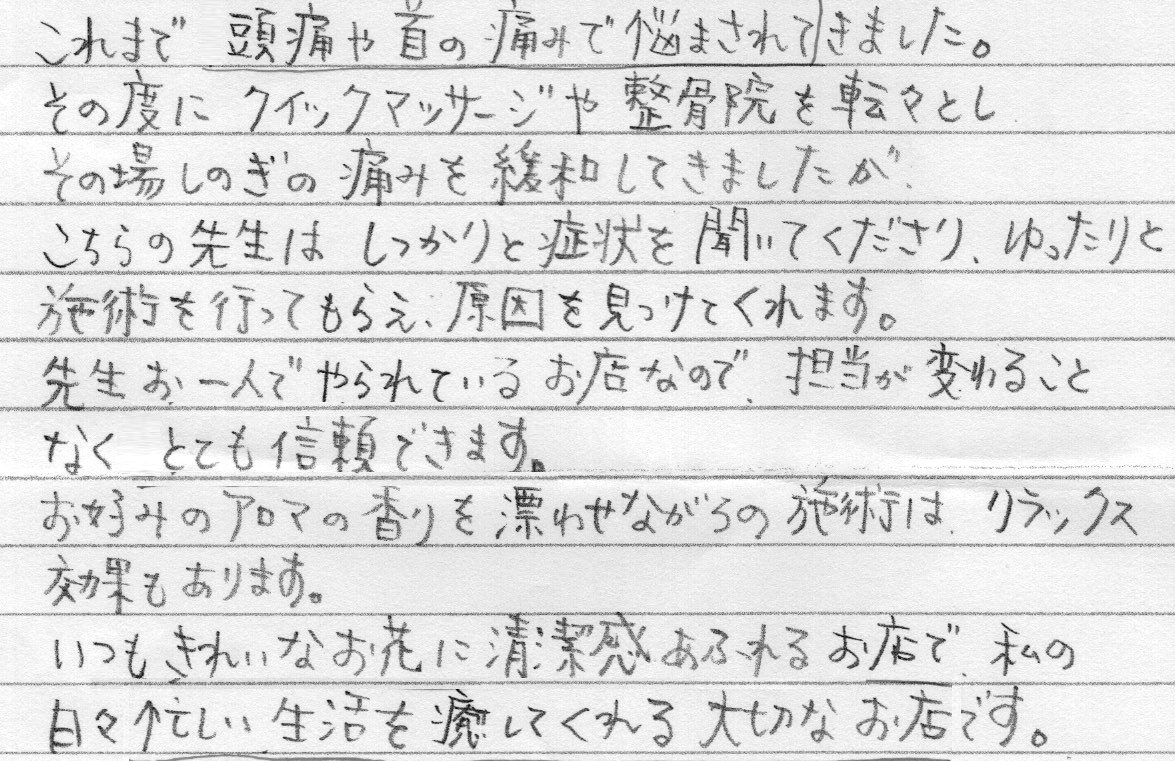 これまで 頭痛や首の痛みで悩まされてきました。
その度に クイックマッサージや 整骨院を転々とし
その場しのぎの 痛みを緩和してきましたが、
こちらの先生は しっかりと症状を聞いてくださり、ゆったりと
施術を行ってもらえ、原因を見つけてくれます。
先生お一人で やられているお店なので、担当が変わること
なく とても信頼できます。
お好みのアロマの香りを漂わせながらの施術は、リラックス
効果もあります。
いつもきれいなお花に清潔感あふれるお店で、私の
日々忙しい生活を癒してくれる大切なお店です。